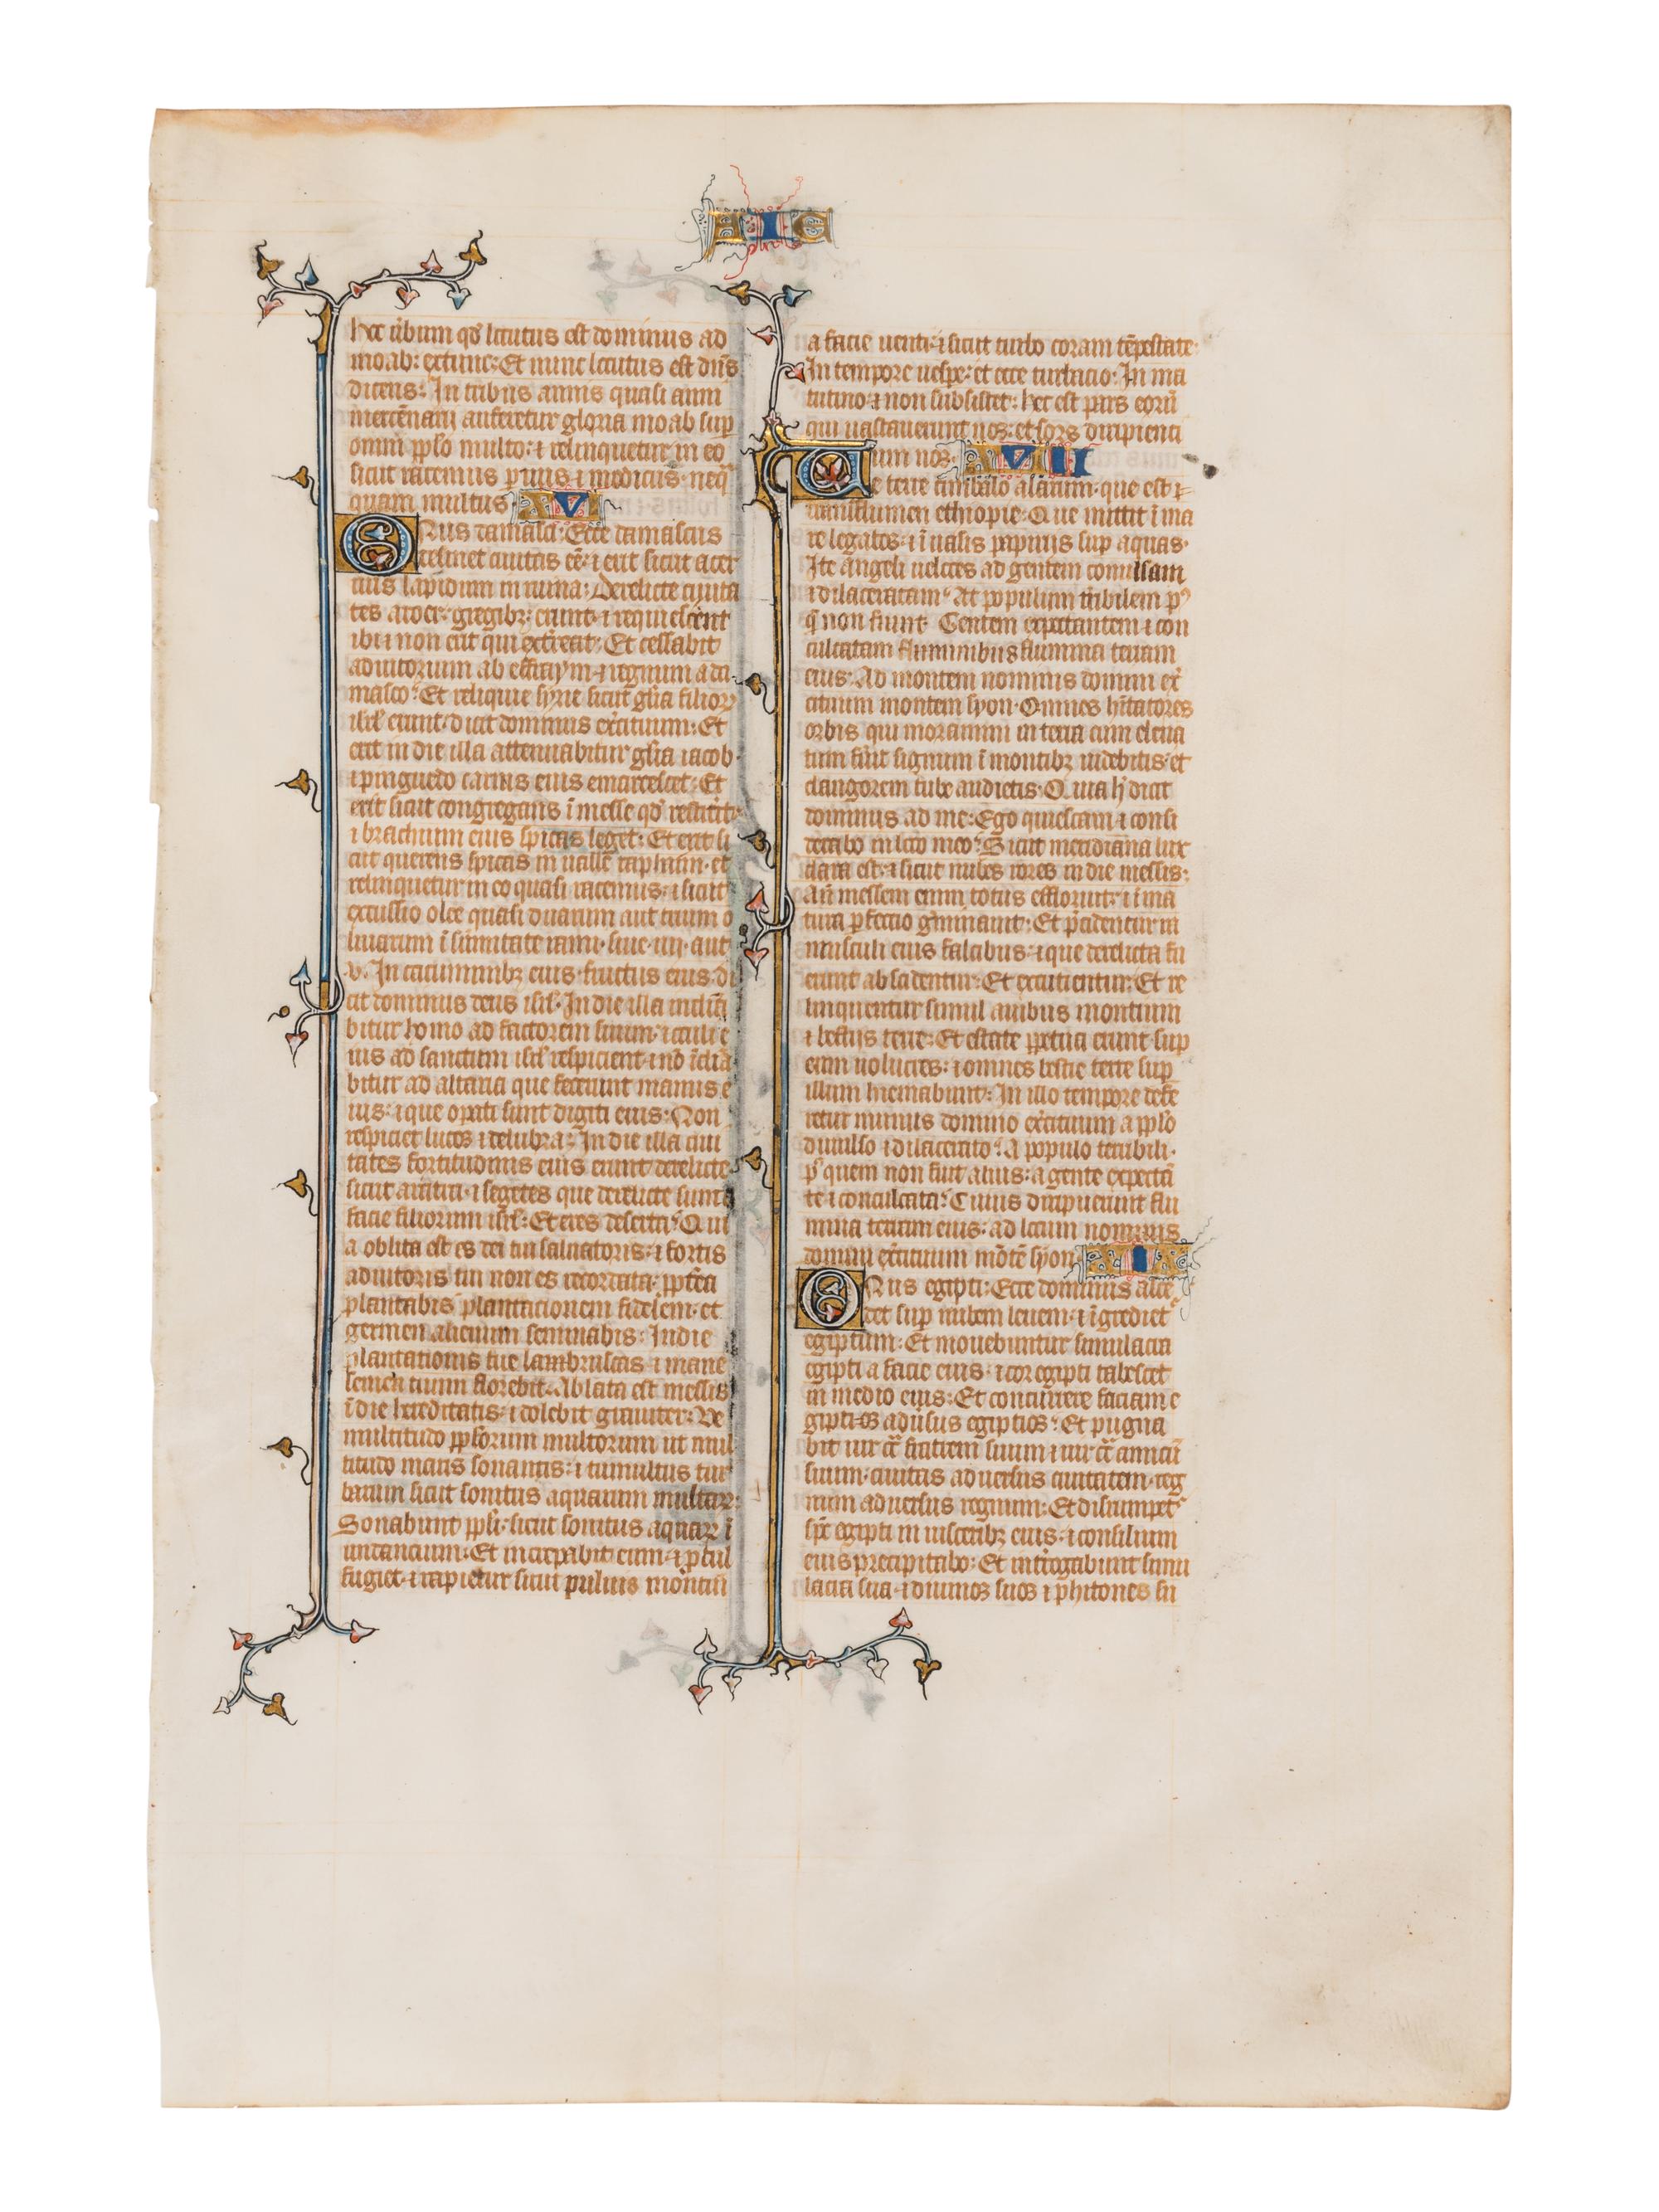 hoc ūbum qd̄ locutus est dominus ad
moab: ex tunc: Et nunc locutus est dn̄s
dicens: In tribus annis quasi anni
mercēnarij auferetur gloria moab sup̄
omni pp̄lo multo: ⁊ relinquetur in eo
sicut racemus p̄uus ⁊ modicus neq̄
quam multus V
Onus damasci: Ecce damascus
desinet ciuitas eē: ⁊ erit sicut acer
uus lapidum in ruina: Derelicte ciuita
tes aroer: gregibꝫ erunt ⁊ requiescent
ibi ⁊ non erit qui exterreat: Et cessabit
adiutorium ab effraym ⁊ regnum a da
masco: Et reliquie syrie sicut gl̄ia filioꝝ
isrl̄ erunt dicit dominus exc̄ituum: Et
erit in die illa attenuabitur gl̄ia iacob
⁊ pinguedo carnis eius emarcescet: Et
erit sicut congregans ī messe qd̄ restiterit:
⁊ brachium eius spicas leget: Et erit si
cut querens spicas in ualle raphaim: et
relinquetur in eo quasi racemus: ⁊ sicut
excussio olee quasi duarum aut trium o
liuarum ī sūmitate rami siue iiii aut
v. In cacuminibꝫ eius fructus eius di
cit dominus deus isrl̄. In die illa inclina
bitur homo ad factorem suum: ⁊ oculi e
ius ad sanctum isrl̄ respicient: ⁊ nō īclīa
bitur ad altaria que fecerunt manus e
ius: ⁊ que op̄ati sunt digiti eius: Non
respiciet lucos ⁊ delubra: In die illa ciui
tates fortitudinis eius erunt derelicte
sicut aratra ⁊ segetes que derelicte sunt a
facie filiorum isrl̄: Et eris deserta: Quia
a oblita es dei tui saluatoris: ⁊ fortis
adiutoris tui non es recordata: pp̄terea
plantabis plantacionem fidelem: et
germen alienum seminabis: In die
plantationis tue lambruscas ⁊ mane
semen tuum florebit: Ablata est messis
ī die hereditatis ⁊ dolebit grauiter: Ve
multitudo pp̄lorum multorum ut mul
titudo maris sonantis: ⁊ tumultus tur
barum sicut sonitus aquarum multaꝝ:
Sonabunt pp̄li sicut sonitus aquaꝝ ī
undancium: Et increpabit eum: ⁊ p̄cul
fugiet: ⁊ rapietur sicut puluis montiū
a facie uenti: ⁊ sicut turbo coram tēpestate:
In tempore uesp̄e: et ecce turbacio: In ma
tutino ⁊ non subsistet: hec est pars eorū
qui uastauerunt nos: et sors diripienti
um nos. VIII
Ve terre cimbalo alarum: que est t̄
transflumen ethiopie: Que mittit ī ma
re legatos: ⁊ ī uasis papirus sup̄ aquas:
Ite angeli ueloces ad gentem conuulsam
⁊ dilaceratam: At populum terribilem pꝰ
q̄ non fuit: Gentem expectantem ⁊ con
culcatam fluminibus flumina terram
eius: Ad montem nominis domini exc̄
cituum montem syon: Omnes hītatores
orbis qui moramini in terra cum eleua
tum fuīt signum ī montibꝫ uidebitis: et
clangorem tube audietis: Quia h̄ dicit
dominus ad me: Ego quiescam ⁊ consi
derabo in loco meo: Sicut meridiana lux
clara est: ⁊ sicut nubes roris in die messis:
Añ messem enim totus effloruit: ⁊ ī ma
tura p̄fectio gīminauit: Et p̄cidentur ra
musculi eius falcibus: ⁊ que derelicta fu
erunt abscidentur: Et excutientur: Et re
linquentur simul auibus montium
⁊ bestiis terre: Et estate p̄petua erunt sup̄
eum uolucres: ⁊ omnes bestie terre sup̄
illum hiemabunt: In illo tempore defe
retur munus domino exc̄ituum a pp̄lo
diuulso ⁊ dilacerato: A populo terribili
pꝰ quem non fuit alius: a gente expectā
te ⁊ conculcata: Cuius diripuerunt flu
mina terram eius: ad locum nominis
domini exc̄ituum mōtē syon.
Onus egipti: Ecce dominus asce
det sup̄ nubem leuem: ⁊ īgrediet᷑
egiptum: Et mouebuntur simulacra
egipti a facie eius: ⁊ cor egipti tabescet
in medio eius: Et concurrere faciam e
giptios adūsus egiptios: Et pugna
bit uir c̄ fratrem suum ⁊ uir c̄ amicū
suum: ciuitas aduersus ciuitatem: reg
num aduersus regnum: Et disrumpet᷑
sp̄c egipti in uisceribꝫ eius: ⁊ consilium
eius precipitabo: Et int̄rogabunt simu
lacra sua: ⁊ diuinos suos ⁊ phitones su